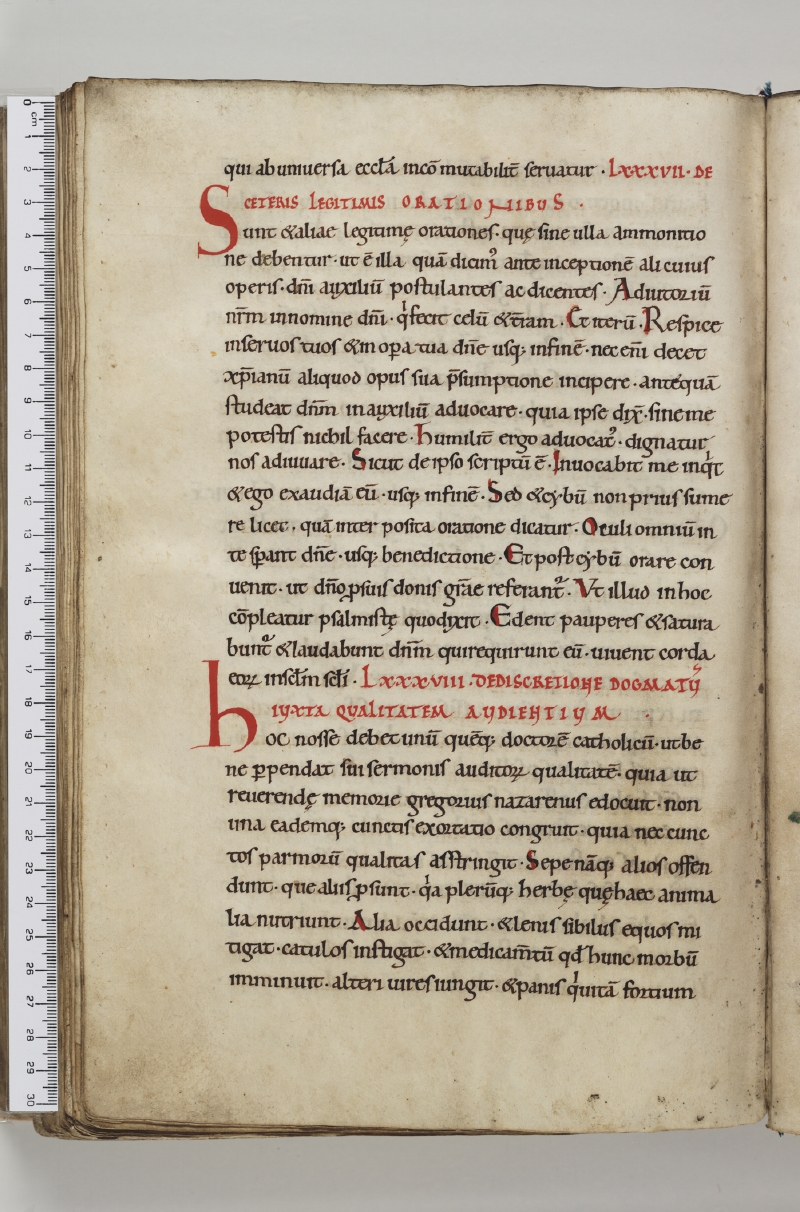 qui ab uniuersa eccl̄a incō mutabilit̄ seruatur · LXXXVII · DE
CETERIS LEGITIMIS ORATIONIBUS ·
Sunt &aliae legitimę orationes · quę sine ulla ammonitio
ne debentur · ut ē illa quā dicim᷒ ante inceptionē alicuius
operis · dn̄i auxiliū postulantes ac dicentes · Adiutoriū
nr̄m innomine dn̄i · qͥ fecit celū &t̄ram · Et iterū · Respice
inseruos tuos &inoꝑa tua dn̄e usq; infinē · nec eni̅ decet
xp̄ianū aliquod opus sua p̄sumptione incipere · antequā
studeat dn̄m inauxiliū aduocare · quia ipse dix̄ · sineme
potestis nichil facere · Humilit̄ ergo aduocat᷒ · dignatur
nos adiuuare · Sicut deipso scriptū ē · Inuocabit me inqͥt
&ego exaudiā eū · usq; infinē · Sed &cybū non prius sume
re licet · quā inter posita oratione dicatur · Oculi omniū in
te sꝑant dn̄e · usq; benedictione · Et post cybū orare con
uenit · ut dn̄o ꝓsuis donis gr̄ae referant᷒ · Vt illud inhoc
cōpleatur psalmistę quodyxit · Edent pauperes &satura
bunt᷒ &laudabunt dn̄m quirequirunt eū · uiuent corda
eoꝝ insc̄lm sc̄li · LXXXVIII · DEDISCRETIONE DOGMATU᷒
IUXTA QUALITATEM AUDIENTIUM
Hoc nosse debet unū quēq; doctorē catholicū · utbe
ne ꝑpendat sui sermonis auditoꝝ qualitatē · quia ut
reuerendę memorie gregorius nazarenus edocuit · non
una eademq; cunctis exortatio congruit · quia nec cunc
tos par moꝝū qualitas asstringit · Sepe nāq; alios offen
dunt · que aliis ꝓsunt · qͣa plerūq; herbę quę haec anima
lia nutriunt · Alia occidunt · &lenis sibilus equos mi
tigat · catulos instigat · &medicam̄tū qd̄ hunc morbū
imminuit · alteri uires iungit · &panis qͥ uitā fortium